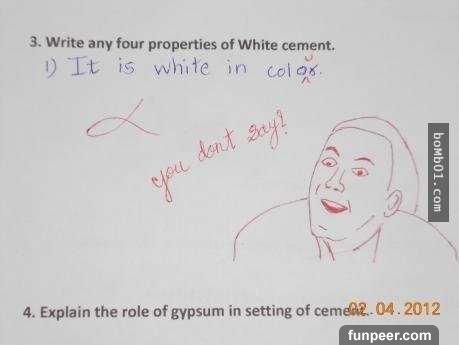 3. Write any four properties of White cement.
1) It is white in color.
u
you dont say?
boMb01.com
4. Explain the role of gypsum in setting of cement.
02.04.2012
funpeer.com